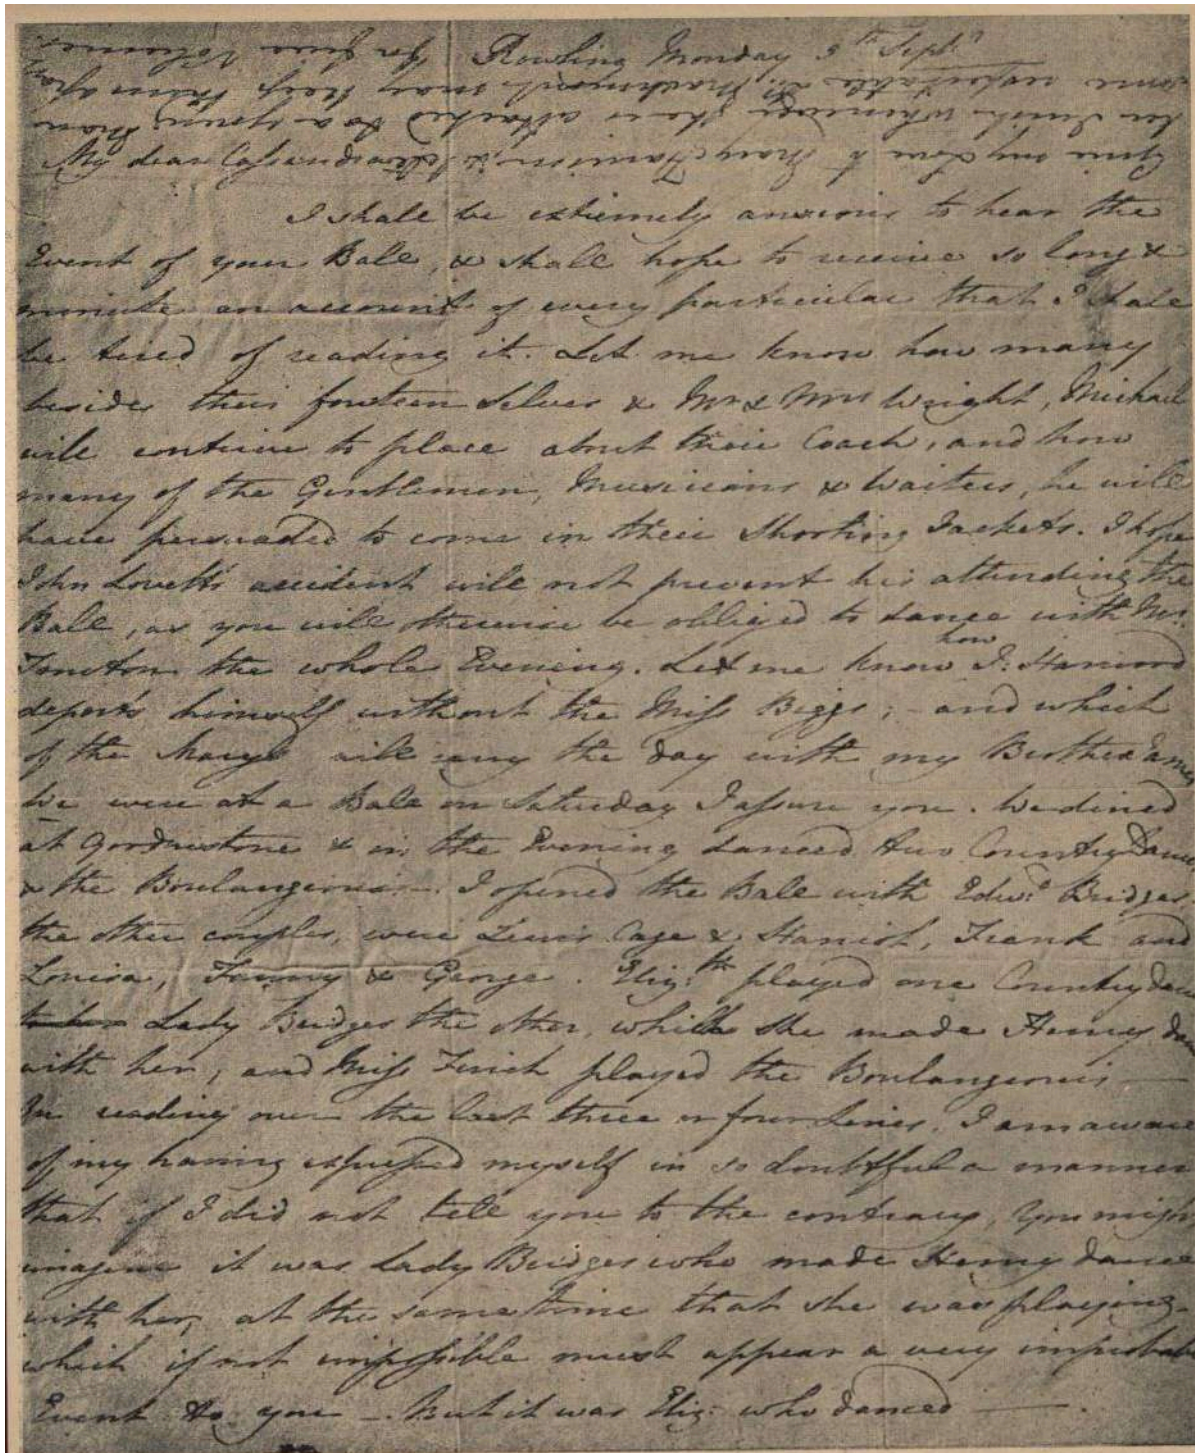 Rowling Monday 5th Septr
My dear Cassandra
I shall be extremely anxious to hear the
Event of your Ball, & shall hope to receive so long &
minute an account of every particular that I shall
be tired of reading it. Let me know how many
besides their fourteen Selves & Mr & Mrs Wright, Michael
will contrive to place about their Coach, and how
many of the Gentlemen, Musicians & Waiters, he will
have persuaded to come in their Shooting Jackets. I hope
John Lovett's accident will not prevent his attending the
Ball, as you will otherwise be obliged to dance with Mr.
Tincton the whole Evening. Let me know how J: Harwood
deports himself without the Miss Biggs; - and which
of the Marys will carry the day with my Brother James.
We were at a Ball on Saturday I assure you. We dined
at Goodnestone & in the Evening danced two Country Dances
& the Boulangeries. I opened the Ball with Edwd: Bridges;
the other couples, were Lewis Cage & Harriot, Frank and
Louisa, Fanny & George. Elizth: played one Country dance
Lady Bridges the other, which she made Henry dance
with her; and Miss Finch played the Boulangeries —
In reading over the last three or four Lines, I am aware
of my having expressed myself in so doubtful a manner
that if I did not tell you to the contrary, you might
imagine it was Lady Bridges who made Henry dance
with her, at the same time that she was playing -
which if not impossible must appear a very improbable
Event to you. - But it was Eliz: who danced —.
Give my Love to Mary Harrison, & tell
her I wish whenever she is attached to a young Man,
some respectable Dr. Marchmont may keep them apart
for five Volumes.